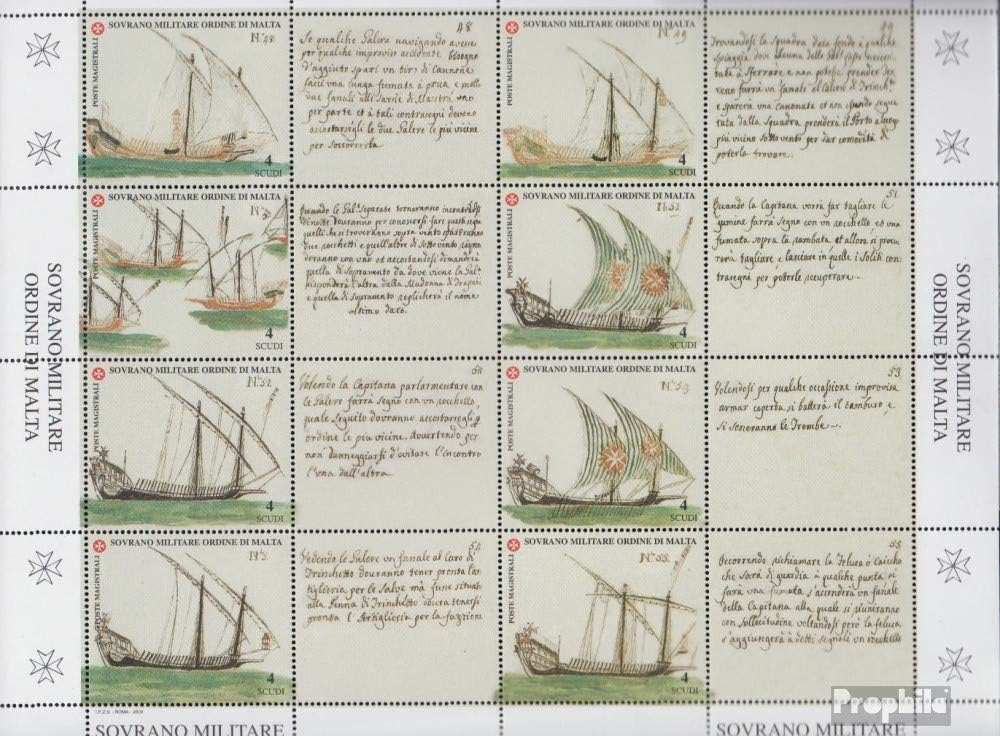 SOVRANO MILITARE ORDINE DI MALTA
POSTE MAGISTRALI
Nº 48.
4
SCUDI
48
Se qualche Galera navigando avesse
per qualche improviso accidente bisogno
d'aggiuto spari un tiro di Cannone
facci una lunga fumata à prua e metti
due fanali alle Sartie di Maestra uno
per parte et à tali contrasegni devono
accostarsegli le due Galere le più vicine
per soccorrerla
SOVRANO MILITARE ORDINE DI MALTA
POSTE MAGISTRALI
Nº 49
4
SCUDI
49
Trovandosi la Squadra dato fondo à qualche
spiaggia
tata à sferrare e non potesse prender ter
reno farrà un fanale al Calcese di Trinchº
e sparerà una canonata et non essendo segui
tata dalla Squadra prenderà il Porto
più vicino sottovento per dar comodità di
poterla trovare
SOVRANO MILITARE ORDINE DI MALTA
POSTE MAGISTRALI
4
SCUDI
Quando le Galº separate torneranno
di notte dovranno per conoscersi fare
quelli che si troveranno sopra vento
due rocchetti e quell'altre di sotto vento
deranno con uno et accostandosi demanderà
quella di Sopravento da dove viene la Galº
risponderà l'altra dalla Madonna di Trapani
e quella di sopravento replicherà il nome
ultimo dato.
SOVRANO MILITARE ORDINE DI MALTA
POSTE MAGISTRALI
4
SCUDI
51
Quando la Capitana vorrà far tagliare le
gumine farrà segno con un rocchetto et una
fumata sopra la rambata et allora si procu
rerà tagliare e lasciare in quelle i soliti con
trasegni per poterle recuperare
SOVRANO MILITARE ORDINE DI MALTA
POSTE MAGISTRALI
Nº 52.
4
SCUDI
Volendo la Capitana parlarmentare con
le Galere farrà segno con un rocchetto
quale seguito dovranno accostarsegli
ordine le più vicine. Avvertendo per
non danneggiarsi d'evitare l'incontro
l'una dall'altra
SOVRANO MILITARE ORDINE DI MALTA
POSTE MAGISTRALI
Nº 53
4
SCUDI
53
Volendosi per qualche occassione improvisa
armar coperta si batterà il tamburo e
si soneranno le Trombe
SOVRANO MILITARE ORDINE DI MALTA
POSTE MAGISTRALI
4
SCUDI
54
Vedendo le Galere un fanale al Caro di
Trinchetto dovranno tener pronta l'ar
tiglieria per le Salve mà
alla Penna di Trinchetto
pronta l'Artiglieria per la fazzione
SOVRANO MILITARE ORDINE DI MALTA
POSTE MAGISTRALI
Nº 55.
4
SCUDI
55
Occorrendo richiamare la Feluca ò Caicchio
che sarà di guardia à qualche punta si
farà una fumata s'accenderà un fanale
della Capitana alla quale si
con sollecitudine voltandosi però la feluca
s'aggiungerà à detti segnali un rocchetto
SOVRANO MILITARE
ORDINE DI MALTA
SOVRANO MILITARE
ORDINE DI MALTA
I.P.Z.S. - ROMA - 2009
SOVRANO MILITARE
SOVRANO MILITARE
Prophila